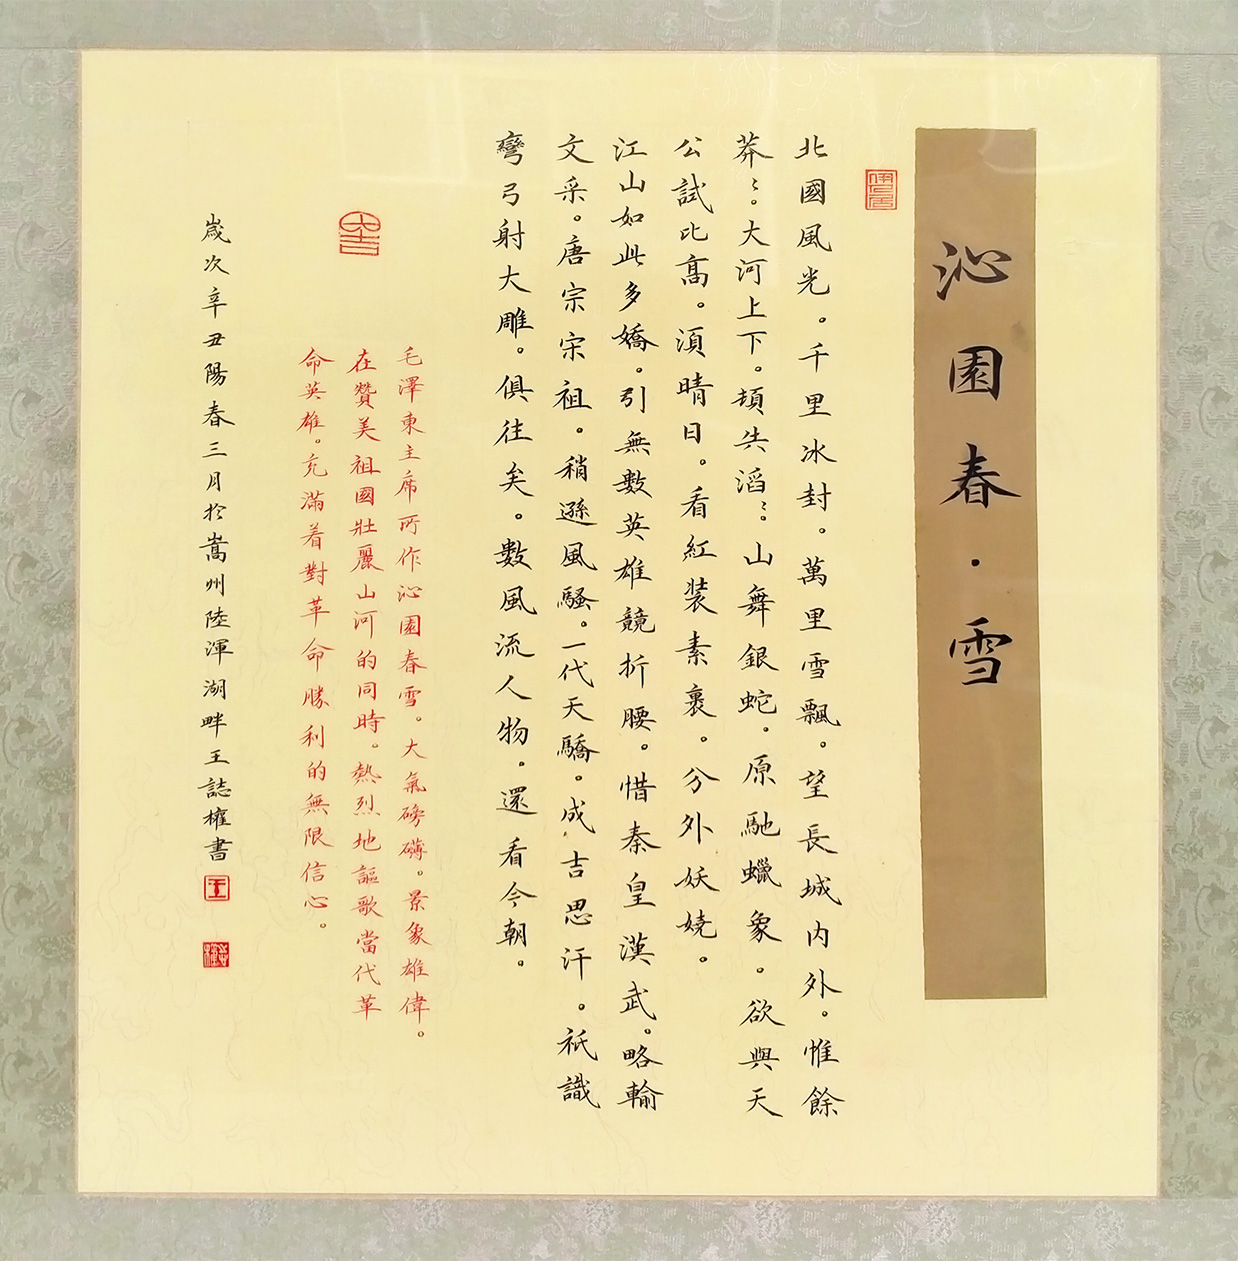 沁園春·雪
北國風光。千里冰封。萬里雪飄。望長城内外。惟餘
莽〻。大河上下。頓失滔〻。山舞銀蛇。原馳蠟象。欲與天
公試比高。須晴日。看紅裝素裹。分外妖嬈。
江山如此多嬌。引無數英雄競折腰。惜秦皇漢武。略輸
文采。唐宗宋祖。稍遜風騷。一代天驕。成吉思汗。祇識
彎弓射大雕。俱往矣。數風流人物。還看今朝。
大吉
毛澤東主席所作沁園春雪。大氣磅礴。景象雄偉。
在贊美祖國壯麗山河的同時。熱烈地謳歌當代革
命英雄。充滿着對革命勝利的無限信心。
歲次辛丑陽春三月於嵩州陸渾湖畔王誌權書
王